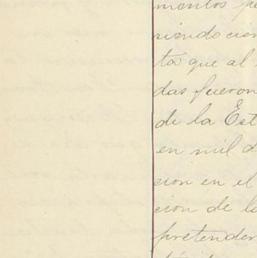 mentos pa
siendo cier
ta que al
das fueron
de la Est
en mil d
cion en el
cion de la
pretender